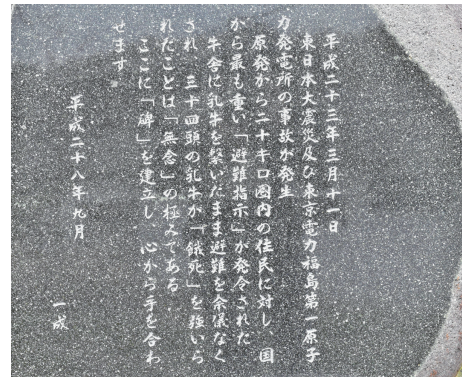 平成二十三年三月十一日
東日本大震災及び東京電力福島第一原子
力発電所の事故が発生
原発から二十キロ圏内の住民に対し、国
から最も重い「避難指示」が発令された
牛舎に乳牛を繋いだまま避難を余儀なく
され、三十四頭の乳牛が「餓死」を強いら
れたことは「無念」の極みである
ここに「碑」を建立し、心から手を合わ
せます。
平成二十八年九月
一成